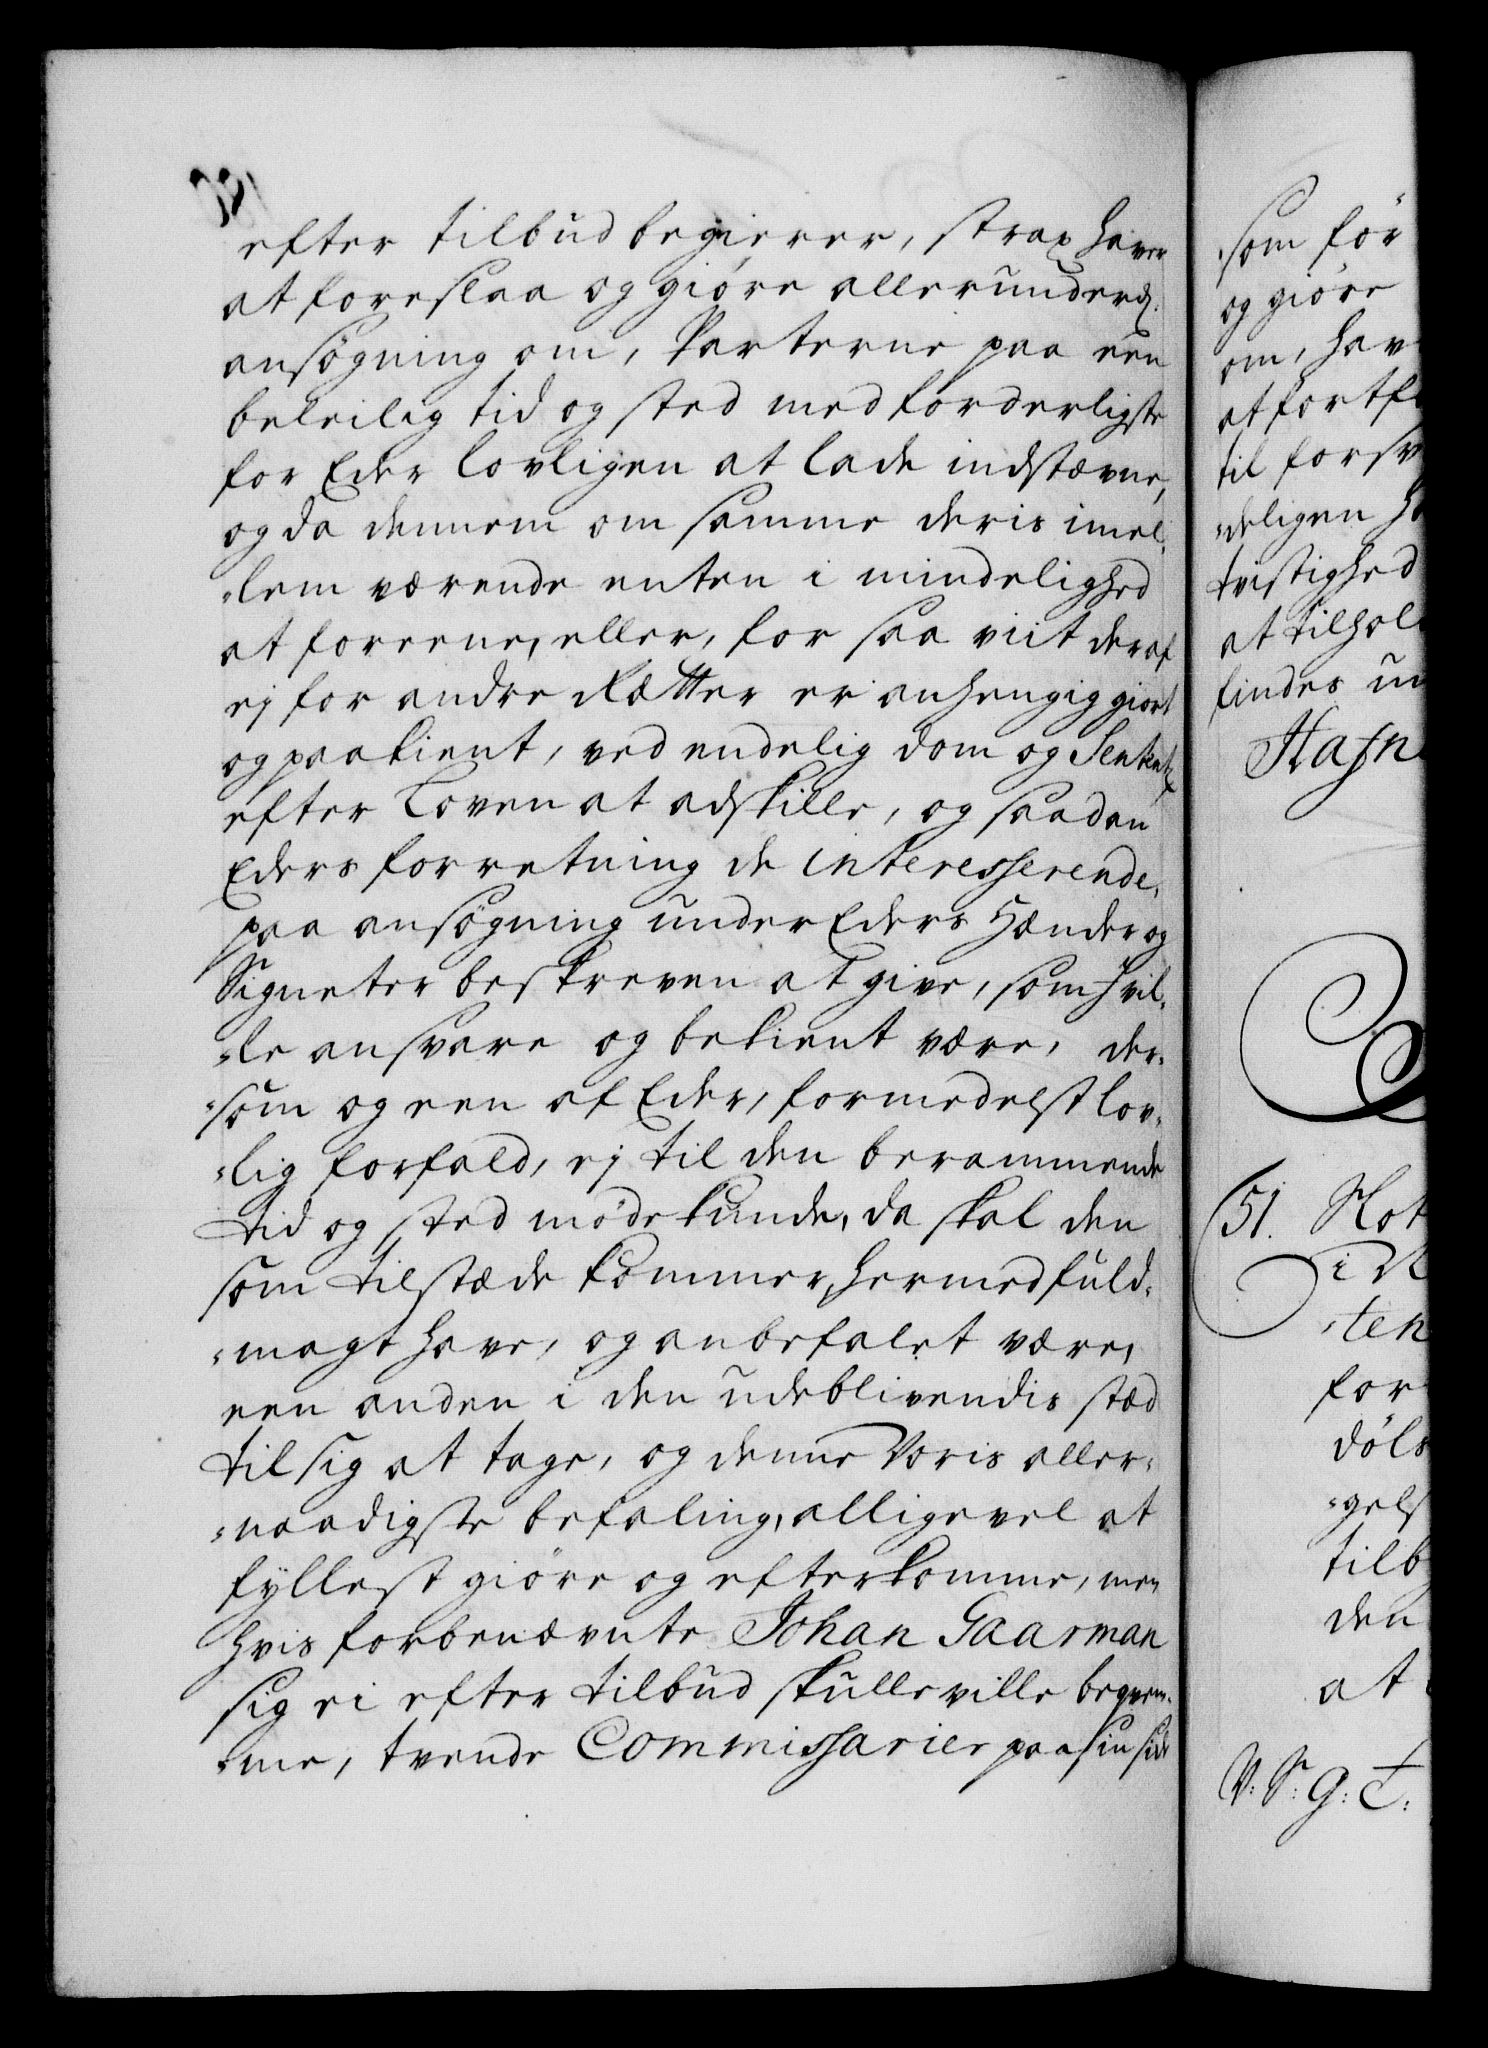 efter tilbud begierer, strax haver
at foreslaa og giöre allerunderd.
ansögning om, Parterne paa een
beleilig tid og sted med forderligste
for Eder lovligen at lade indstævne,
og da dennem om samme deris imel,,
,,lem værende enten i mindelighed
at foreene, eller, for saa viit deraf
ej for andre Rætter er anhengig giort
og paakient, ved endelig dom og Sententz
efter Loven at adskille, og saadan
Eders forretning de interesserende,
paa ansögning under Eders Hænder og
Signeter beskreven at give, som I vil,,
,,le ansvare og bekient være, der,,
,,som og een af Eder, formedelst lov,,
,,lig forfald, ej til den berammende
tid og sted möde kunde, da skal den
som tilstæde kommer, hermed fuld,,
,,magt have, og anbefalet være,
een anden i den udeblivendis stæd
til sig at tage, og denne Voris aller,,
,,naadigste befaling, alligevel at
fyllest giöre og efterkomme, men
hvis forbenævnte Johan Gaarman
sig ei efter tilbud skulle ville beqvem,,
,,me, tvende Commissarier paa sin side
som för
og giöre
om, hav
at fortf
til forsv
,,deligen h
tvistighed
at tilhol
findes un
Hafn
51. Not
i R
,,ten
for
döls
,,gels
tilb
den
at
V: S: G: T: